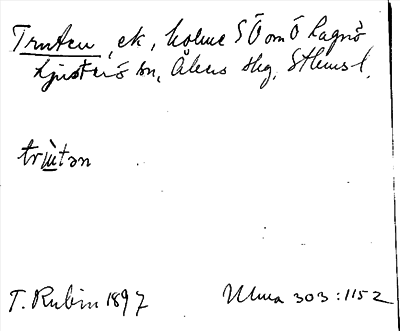 Truten, ek, holme SÖ om Ö Lagnö
Ljusterö sn, Åkers skg, Sthms l.
trùtən
T. Rubin 1897 Ulma 303:1152